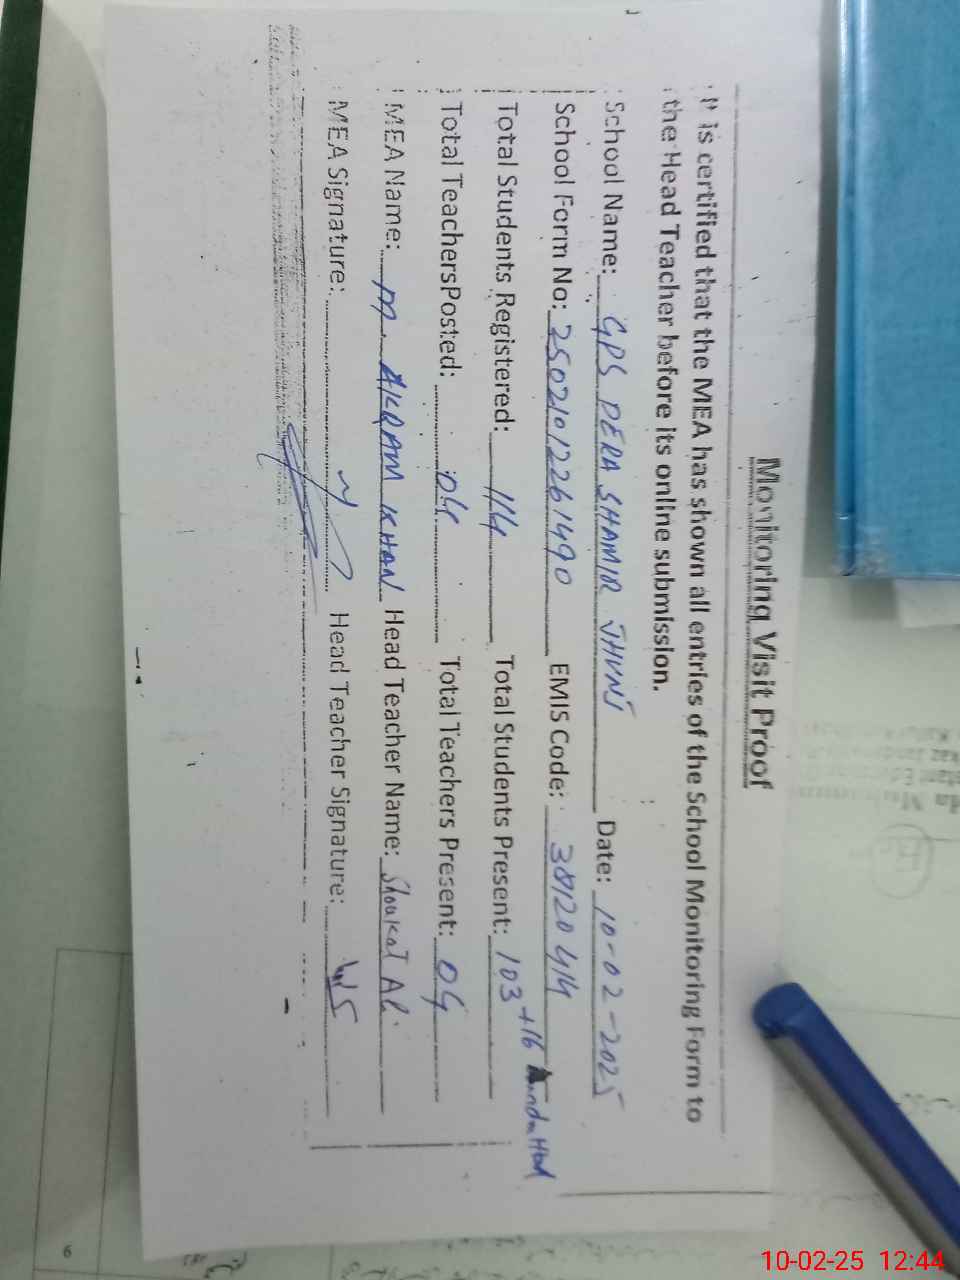 Monitoring Visit Proof
It is certified that the MEA has shown all entries of the School Monitoring Form to
the Head Teacher before its online submission.
School Name: GPS DERA SHAMIR JHUNJ Date: 10-02-2025
School Form No: 25021012261490 EMIS Code: 38120414
Total Students Registered: 114 Total Students Present: 103 +16
Total TeachersPosted: 04 Total Teachers Present: 04
MEA Name: M. AKRAM KHAN Head Teacher Name: Shoukat Ali
MEA Signature: Head Teacher Signature:
6
10-02-25 12:44